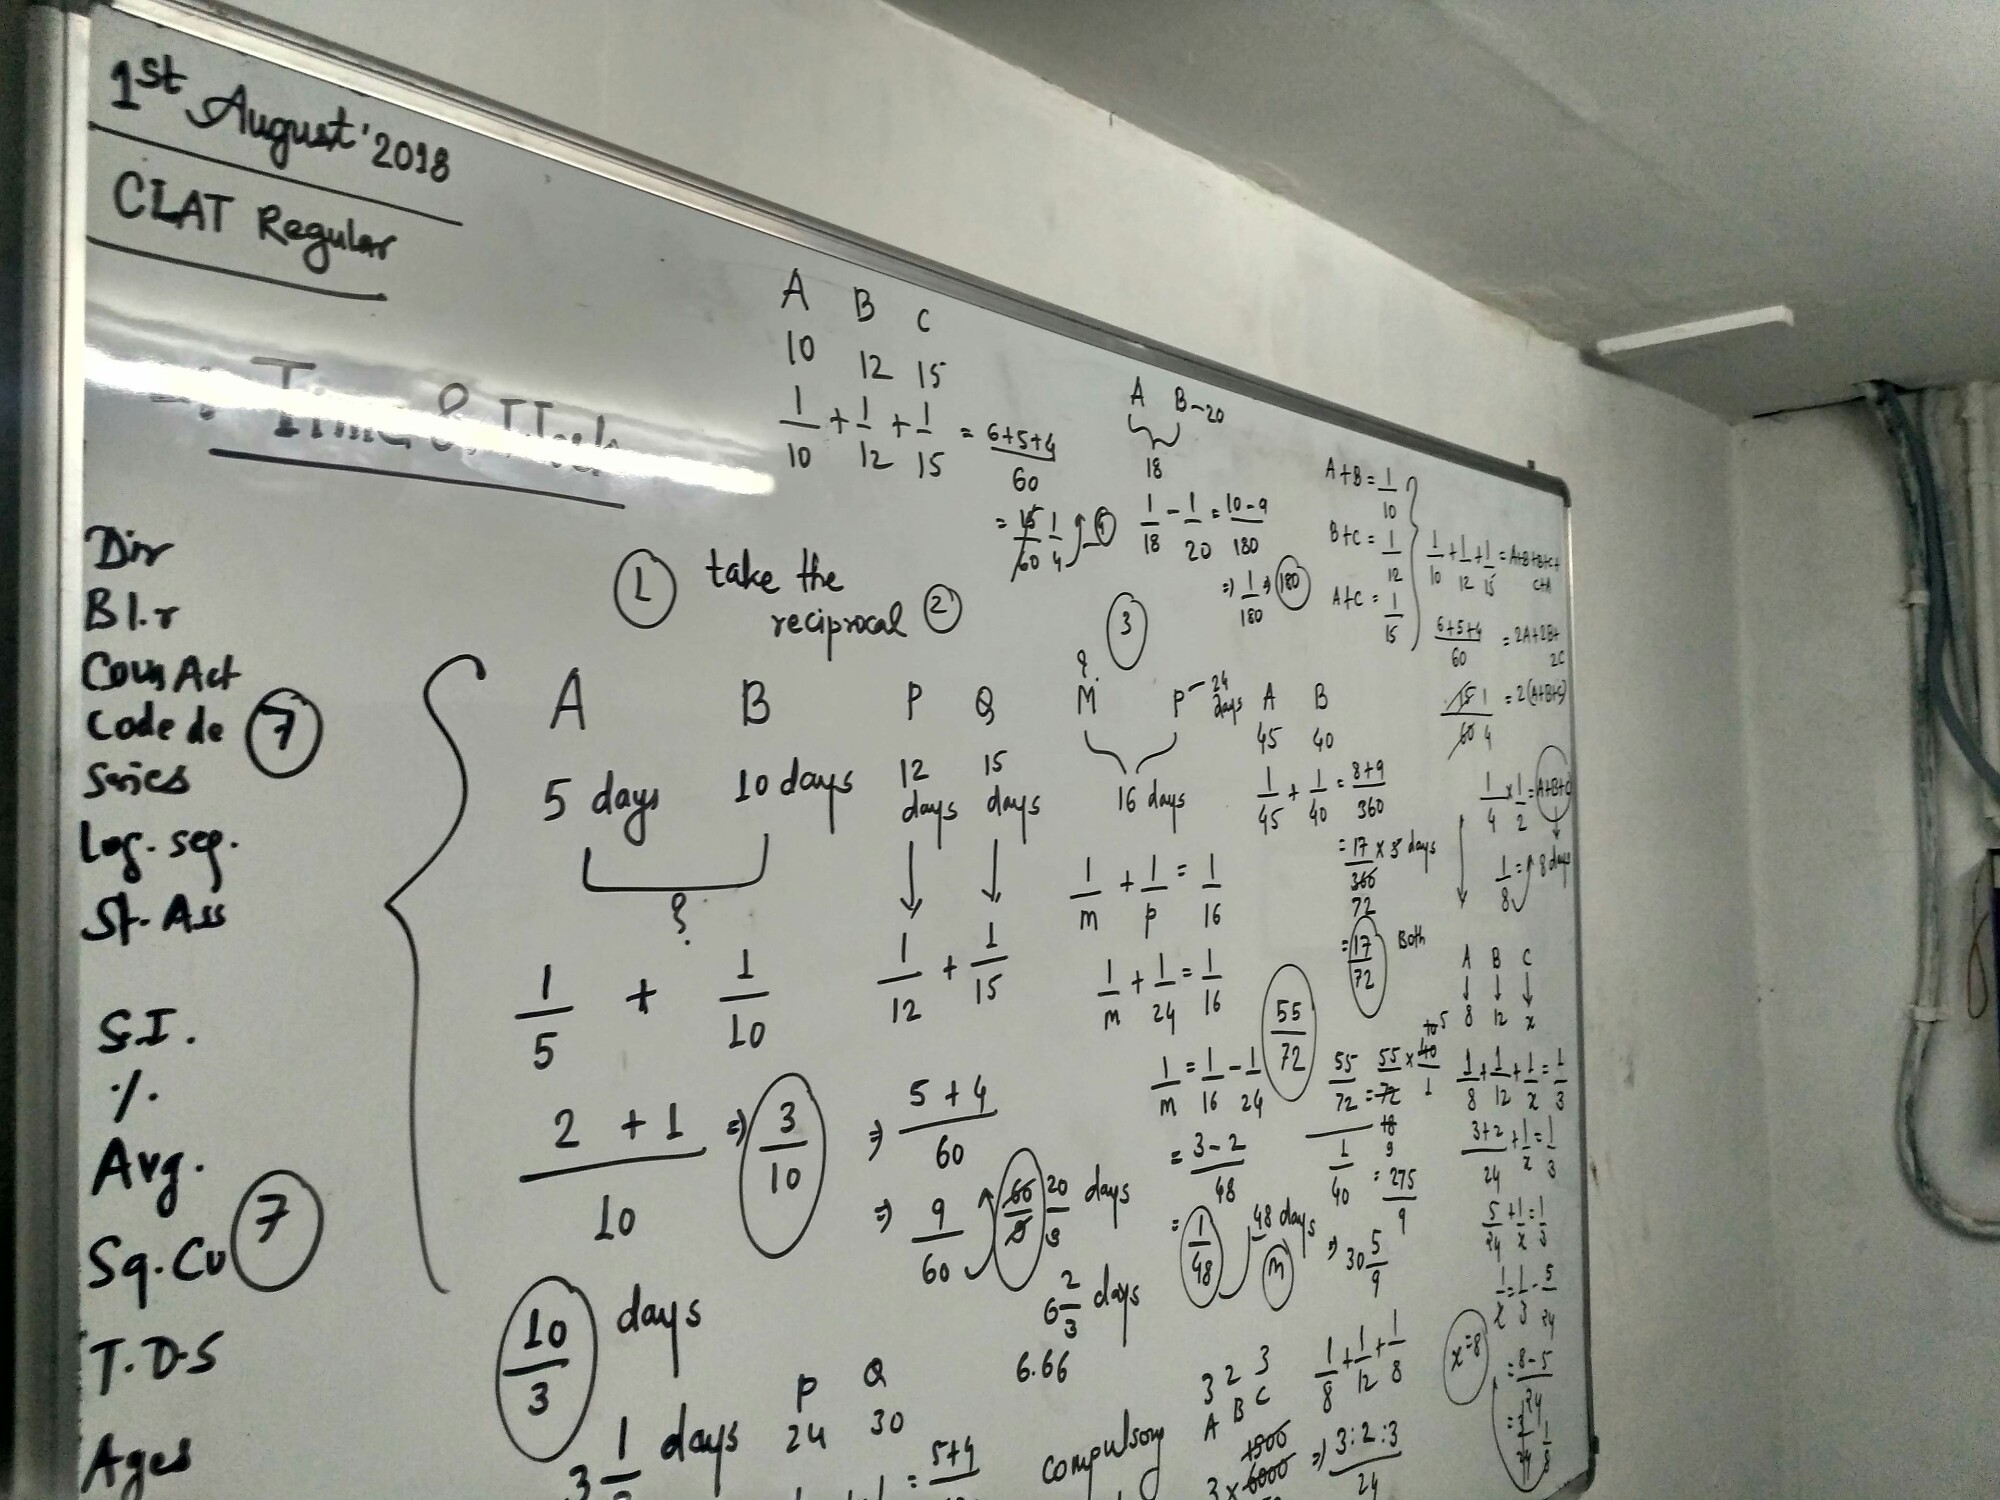 1st August'2018
CLAT Regular
Time & Work
Dir
Bl.r
Coun Act
Code de
Series
7
Log. seq.
St. Ass
S.I.
%
Avg.
Sq. Cu
7
T.D.S
Ages
A B C
10 12 15
1/10 + 1/12 + 1/15 = 6+5+4/60
= 15/60 1/4
A B-20
18
1/18 - 1/20 = 10-9/180
=> 1/180 => 180
A+B = 1/10
B+C = 1/12
A+C = 1/15
1/10 + 1/12 + 1/15 = A+B+B+C+
C+A
6+5+4/60 = 2A+2B+
2C
15/60 1/4 = 2(A+B+C)
1/4 × 1/2 = A+B+C
1/8 = 8 days
1 take the
reciprocal 2
3
A B
5 days 10 days
?
1/5 + 1/10
2+1/10 => 3/10
10/3 days
3 1/ days
P Q
12 days 15 days
1/12 + 1/15
=> 5+4/60
=> 9/60 60/9 20/3 days
6 2/3 days
6.66
?
M P - 24 days
16 days
1/m + 1/p = 1/16
1/m + 1/24 = 1/16
1/m = 1/16 - 1/24
= 3-2/48
= 1/48 48 days
m
A B
45 40
1/45 + 1/40 = 8+9/360
= 17/360 × 5 days
72
= 17/72 Both
55/72
55/72 = 55/72 × 40/1
1/40 = 275/9
=> 30 5/9
A B C
8 12 x
1/8 + 1/12 + 1/x = 1/3
3+2/24 + 1/x = 1/3
5/24 + 1/x = 1/3
1/x = 1/3 - 5/24
= 8-5/24
= 3/24 1/8
x=8
P Q
24 30
= 5+4
compulsory
3 2 3
A B C
1/8 + 1/12 + 1/8
=> 3:2:3/24
3 × 6000